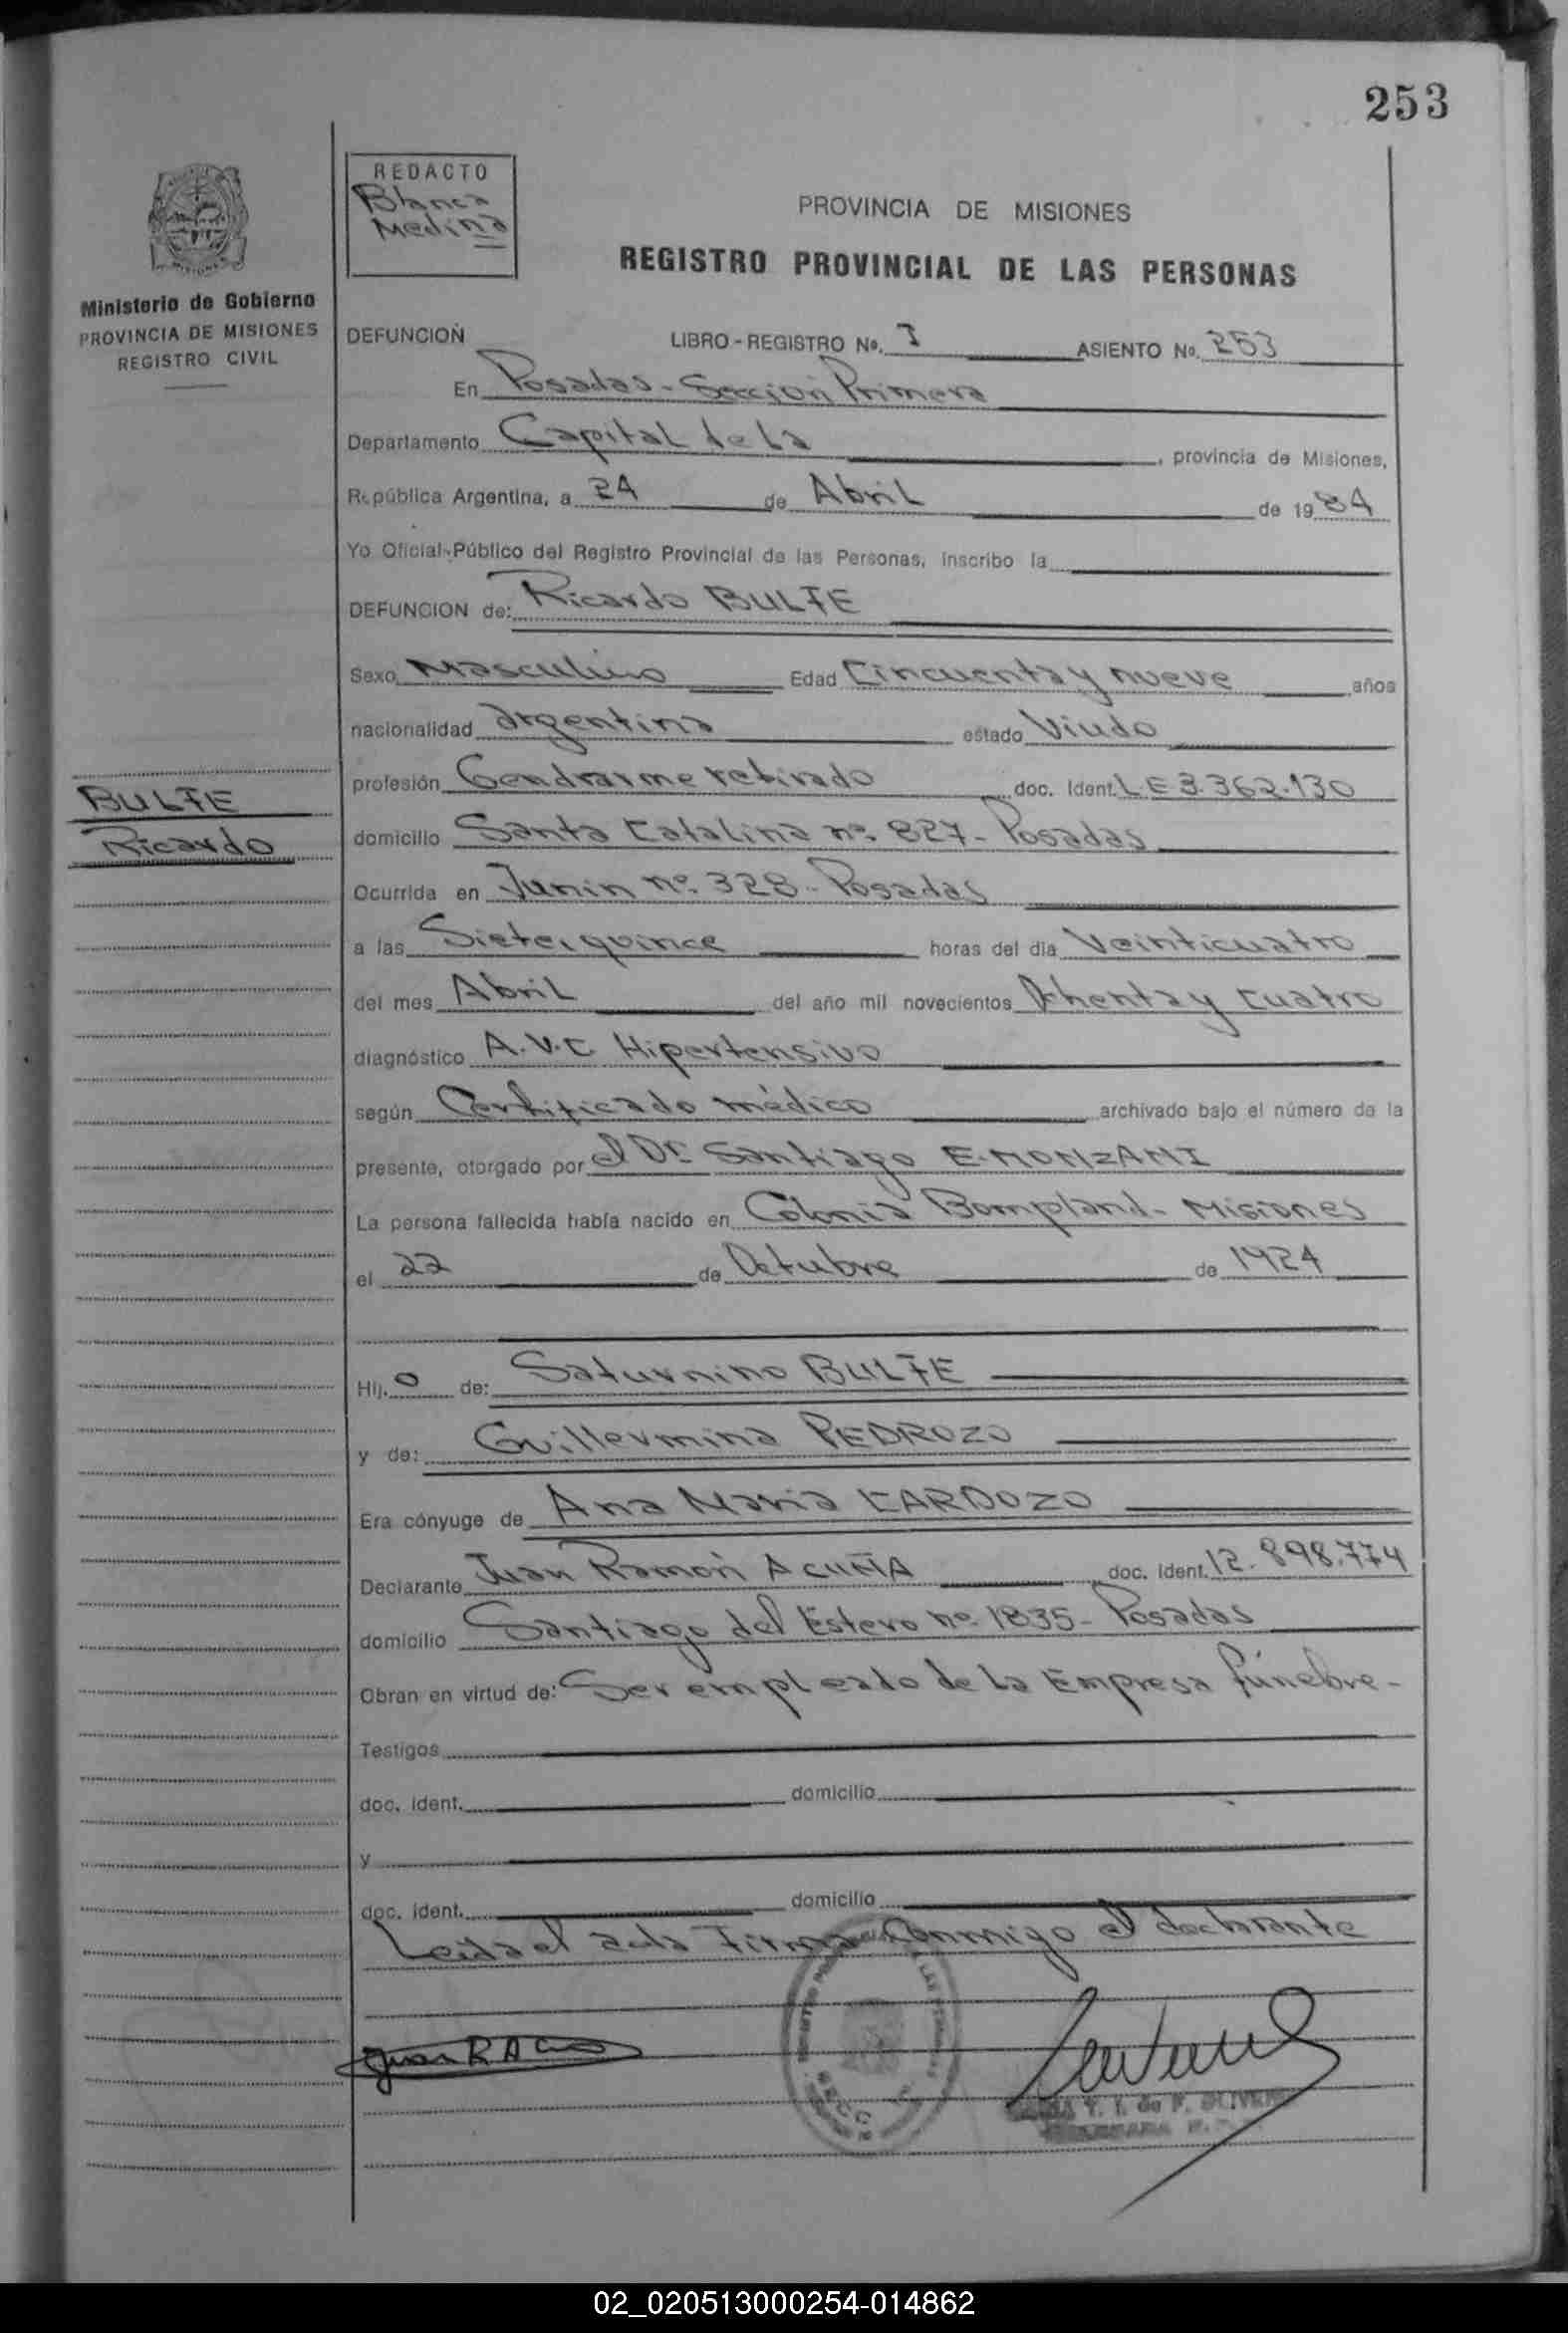 253
REDACTO
Blanca
Medina
PROVINCIA DE MISIONES
REGISTRO PROVINCIAL DE LAS PERSONAS
Ministerio de Gobierno
PROVINCIA DE MISIONES
REGISTRO CIVIL
DEFUNCION LIBRO - REGISTRO No. I ASIENTO No. 253
En Posadas - Sección Primera
Departamento Capital de la , provincia de Misiones,
República Argentina, a 24 de Abril de 1984
Yo Oficial Público del Registro Provincial de las Personas, inscribo la
DEFUNCION de: Ricardo BULFE
Sexo Masculino Edad Cincuenta y nueve años
nacionalidad argentina estado Viudo
profesión Gendrarme retirado doc. Ident. L E 3.362.130
BULFE
Ricardo
domicilio Santa Catalina nº 827 - Posadas
Ocurrida en Junin nº 328 - Posadas
a las Siete, quince horas del día Veinticuatro
del mes Abril del año mil novecientos Ochenta y cuatro
diagnóstico A.V.C. Hipertensivo
según Certificado médico archivado bajo el número de la
presente, otorgado por el Dr. Santiago E. MONZANI
La persona fallecida había nacido en Colonia Bompland - Misiones
el 22 de Octubre de 1924
Hij o de: Saturnino BULFE
y de: Guillermina PEDROZO
Era cónyuge de Ana Maria CARDOZO
Declarante Juan Ramón ACUÑA doc. ident. 12.898.774
domicilio Santiago del Estero nº 1835 - Posadas
Obran en virtud de: Ser empleado de la Empresa fúnebre -
Testigos
doc. ident. domicilio
y
doc. ident. domicilio
Leida el acta Firma Conmigo el declarante
Juan R Acu
Y. I. de F. OLIVER
02_020513000254-014862